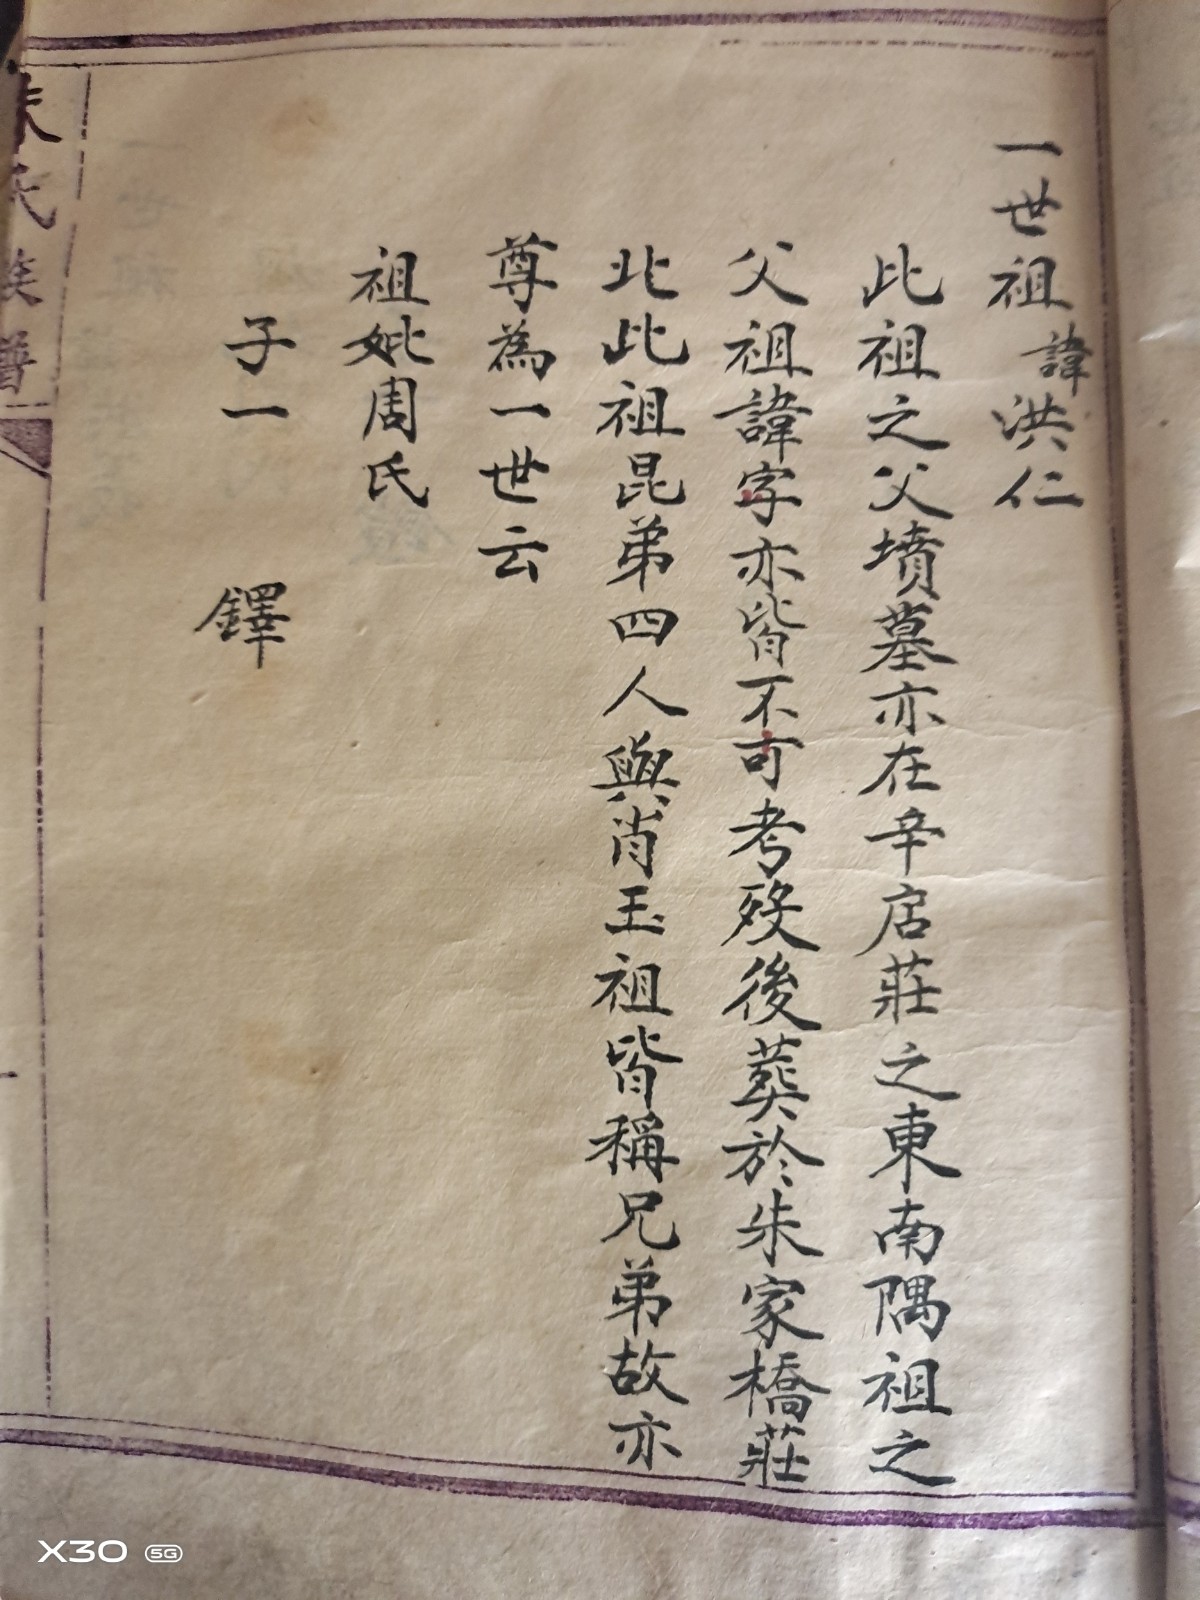 一世祖諱洪仁
此祖之父墳墓亦在辛店莊之東南隅祖之
父祖諱字亦皆不可考歿後葬於朱家橋莊
北此祖昆弟四人與肖玉祖皆稱兄弟故亦
尊為一世云
祖妣周氏
子一 鐸
朱氏族譜
X30 5G